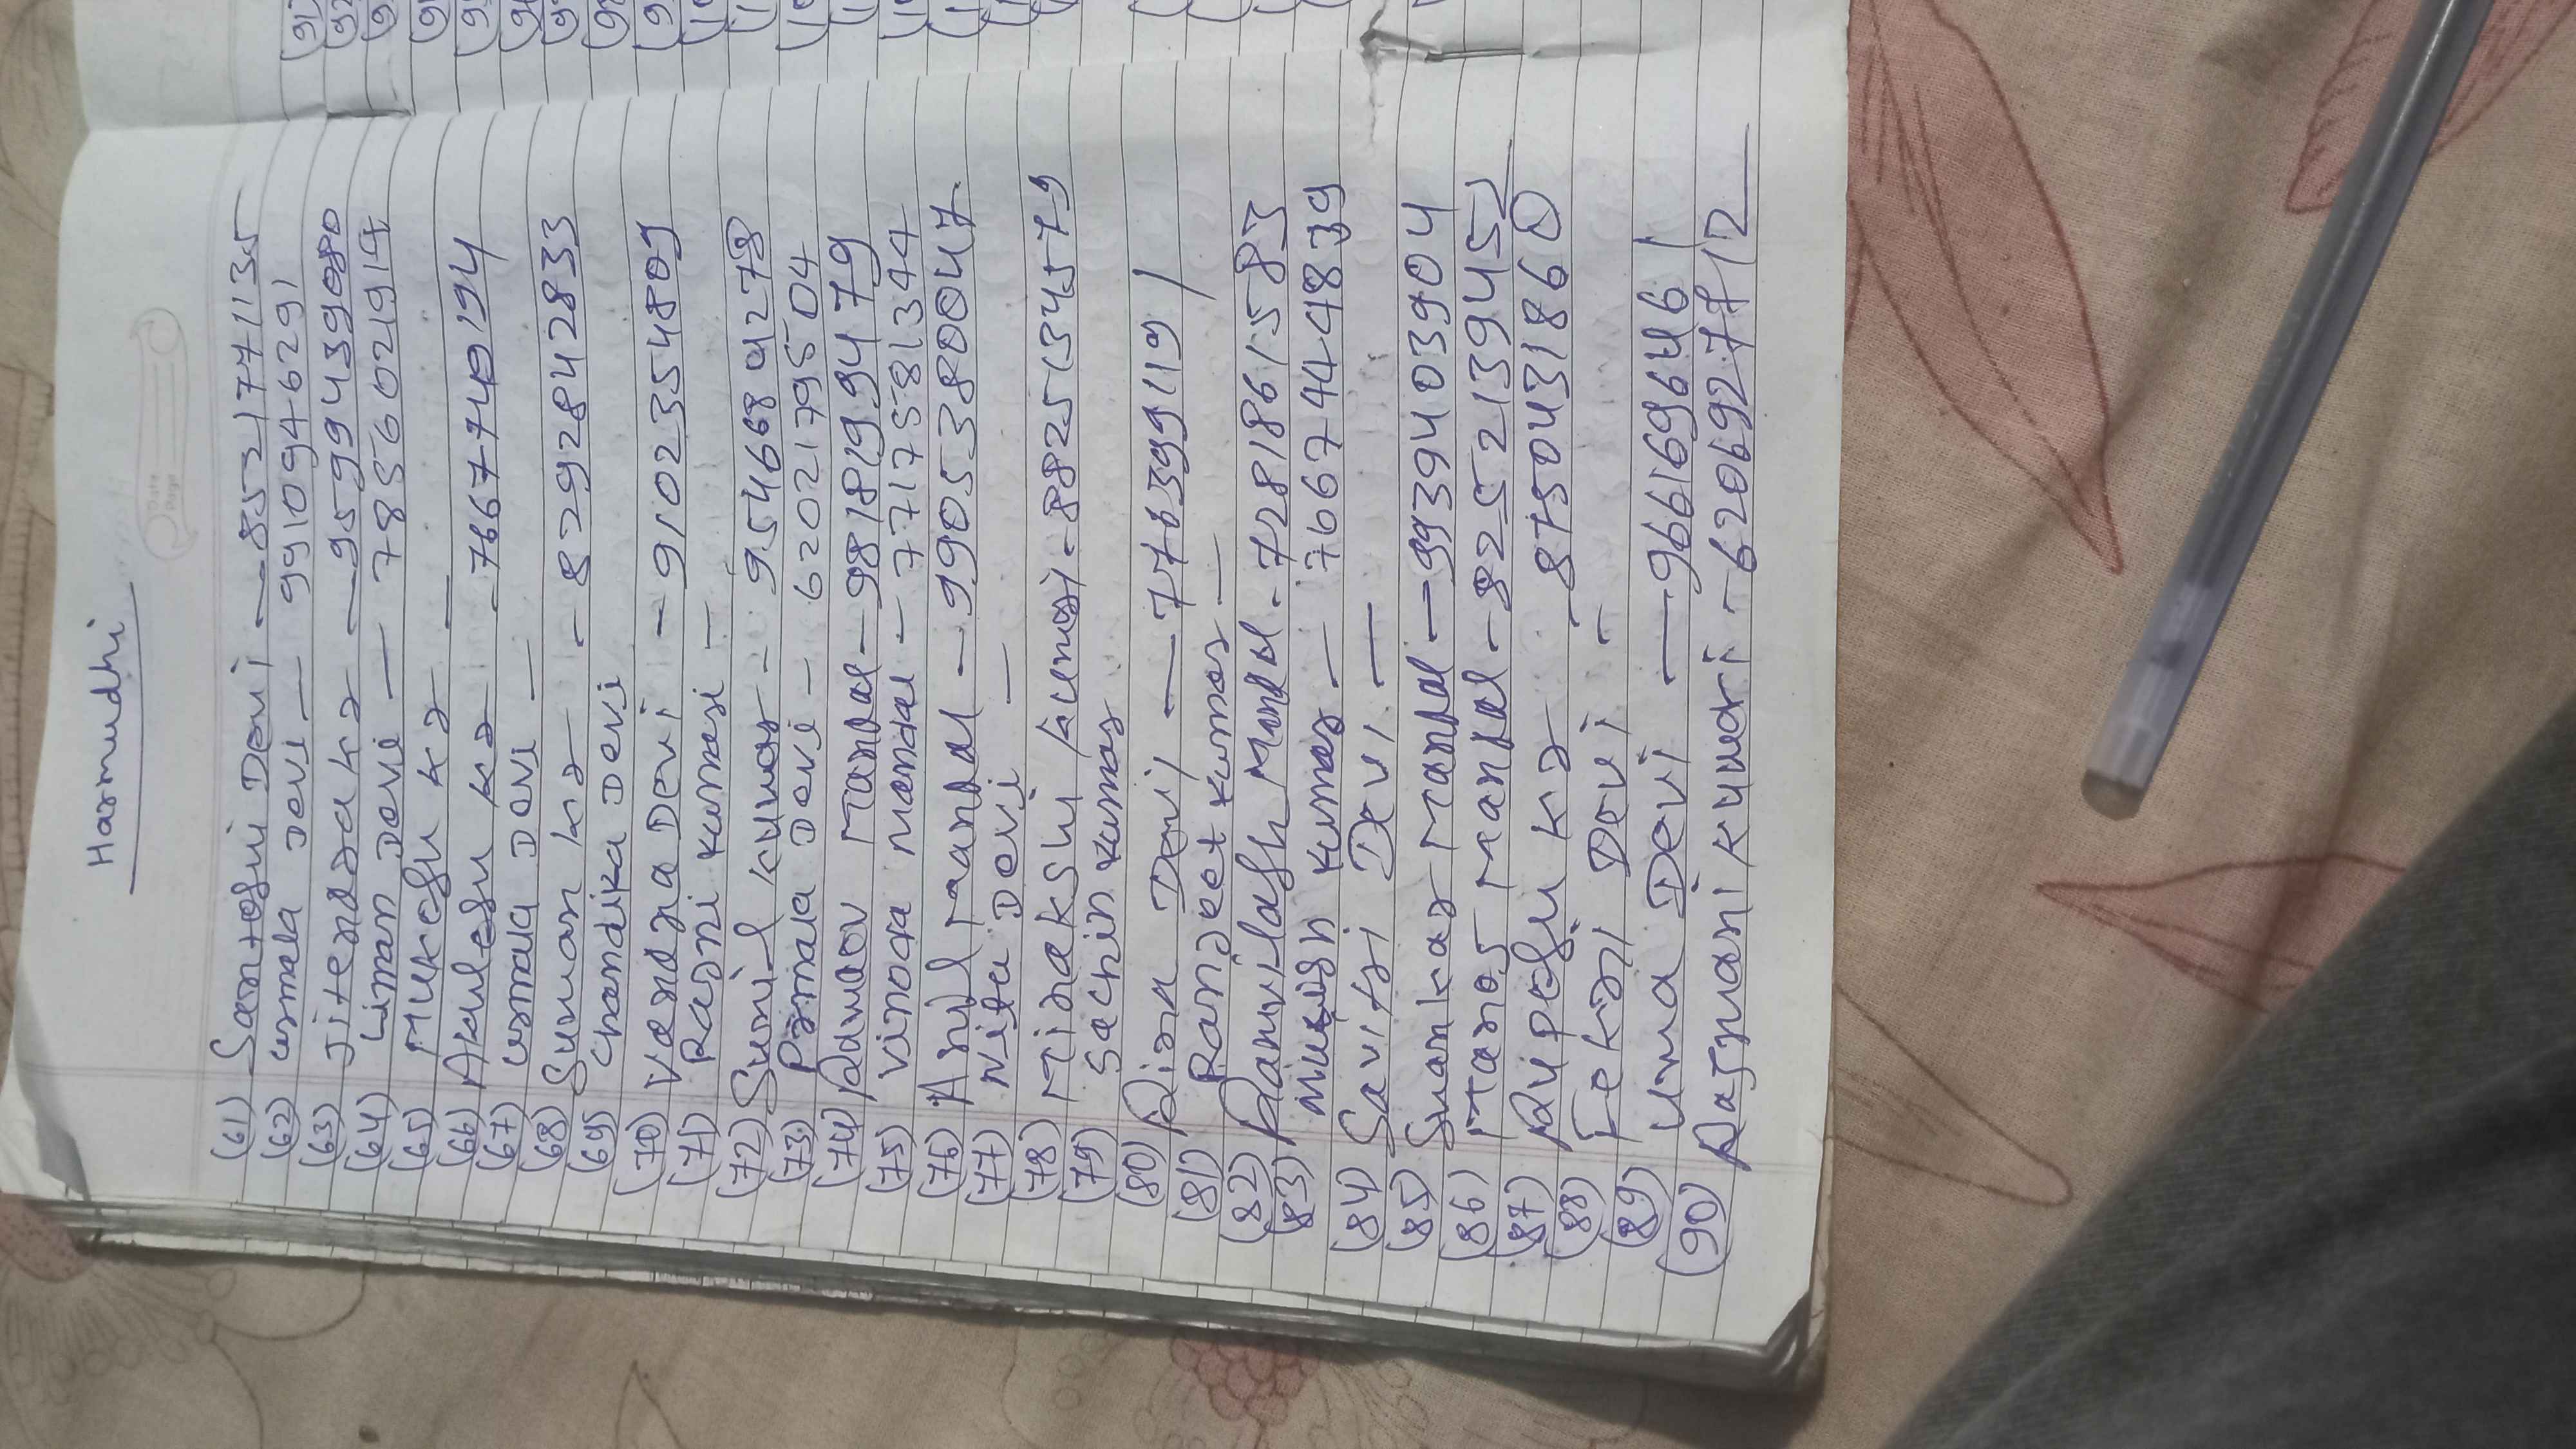 Harmudhi
Date
Page
(61) Santoshi Devi — 8521771135
(62) urmela Devi — 9910946291
(63) Jitendra kr — 9599439080
(64) Liman Devi — 7856021914
(65) Mukesh kr —
(66) Akulesh kr — 7667749194
(67) urmala Devi —
(68) Suman kr — 8292842833
(69) Chandika Devi
(70) Vandna Devi — 9102354809
(71) Rasni kumari —
(72) Sunil kumar — 9546680278
(73) Pramala Devi — 6202179504
(74) Mandal — 9818199479
(75) Vinoda Mandal — 7717581344
(76) Anil Mandal — 9905380047
(77) Nita Devi —
(78) Minakshi kumari - 8825134579
(79) Sachin kumar
(80) Dina Devi — 7763991191
(81) Ranjeet kumar —
(82) Ramvilash Mandal - 7281861583
(83) kumar — 7667444839
(84) Savitri Devi —
(85) Shankar Mandal — 9939403904
(86) Manos Mandal - 8252139452
(87) kr — 8750431860
(88) Fekni Devi —
(89) Uma Devi — 9661696461
(90) Rajmani kumari - 6206927712
(91)
(92)